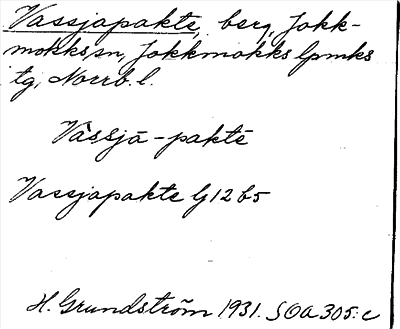 Vassjapakte, berg, Jokk-
mokks sn, Jokkmokks lpmks
tg, Norrb. l.
Vàssjā-paktē
Vassjapakte G 12 b5
H. Grundström 1931. SOA 305:c